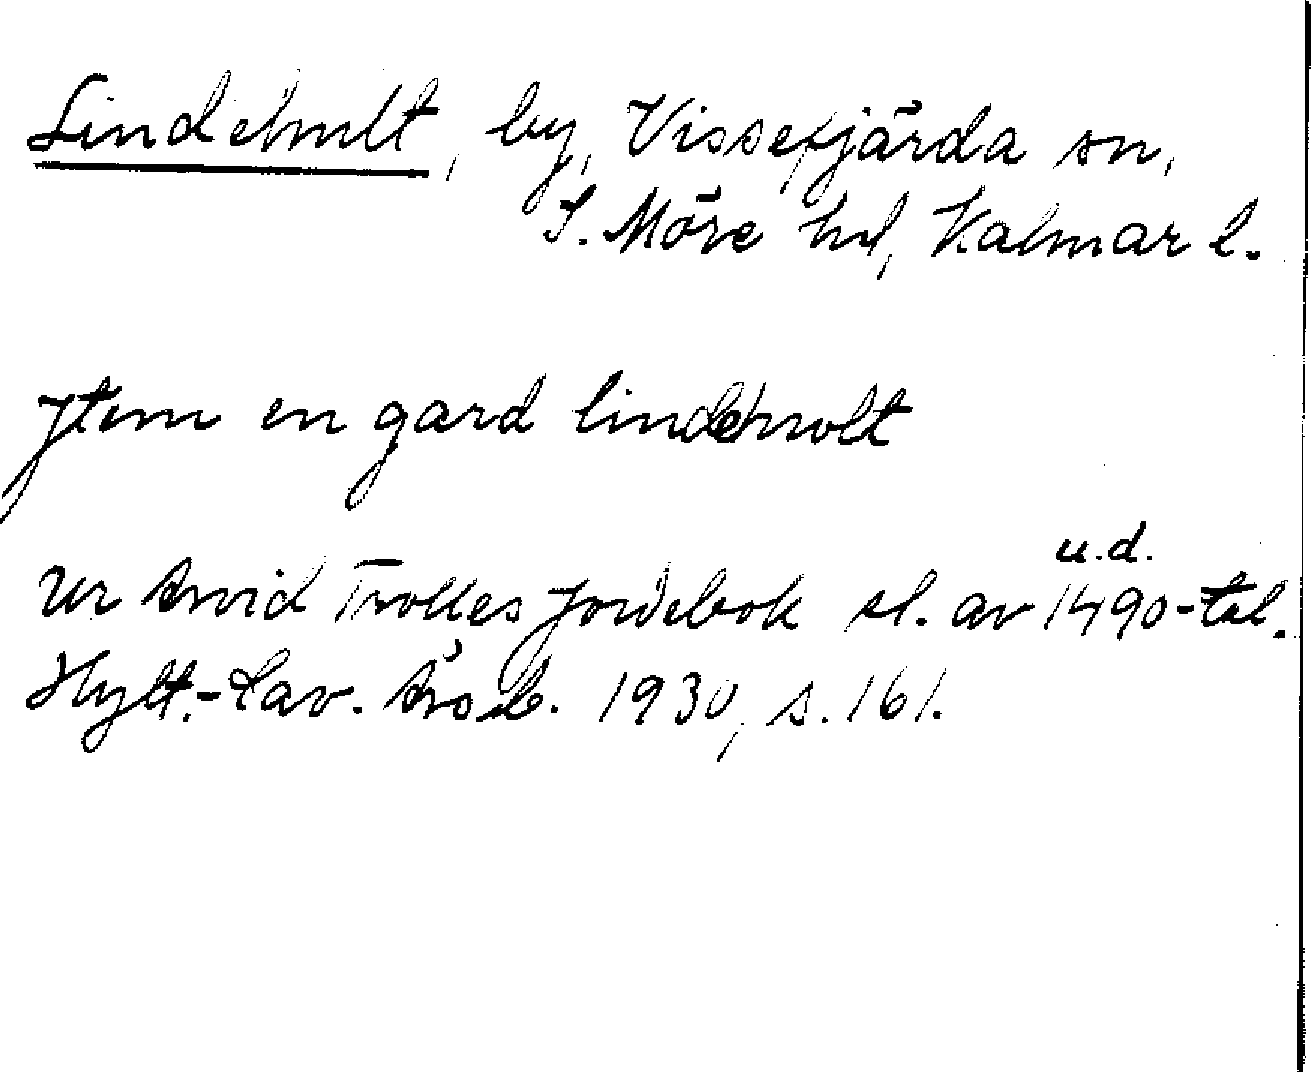 Lindehult, by, Vissefjärda sn,
S. Möre hd, Kalmar l.
Jtem en gard lindehwlt
u.d.
Ur Arvid Trolles Jordebok sl. av 1490-tal.
Hylt.-Cav. Årsb. 1930, s. 161.